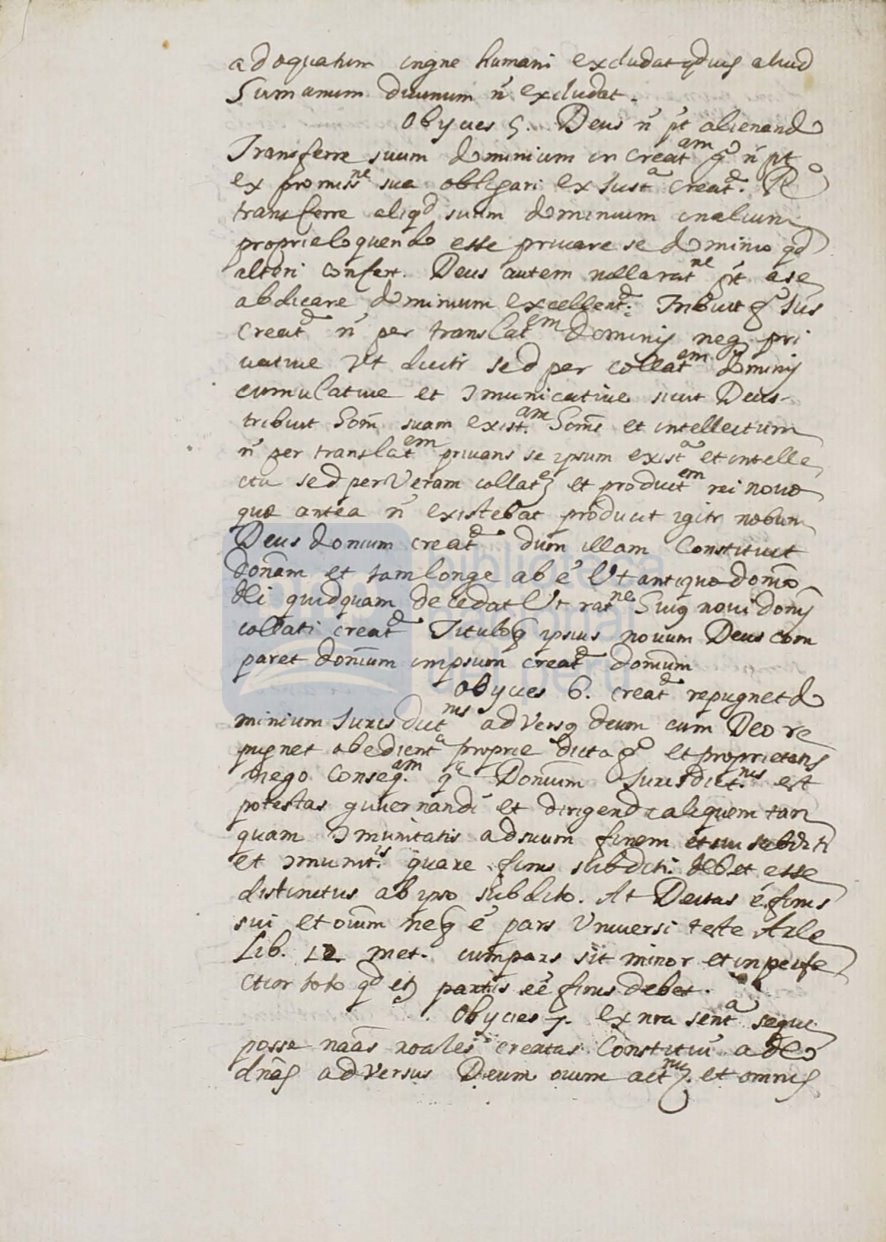 adoquatum ingne humani excludat qduis aliud
Sumanum diuinum ñ excludat.
Obycies 5. Deus ñ pt alienando
Transferre suum dominium in creatam gº ñ pt
ex promissne sua obligari ex Justa creatª. Rº
transferre aliqd suum dominium in alium
proprie loquendo esse priuare se dominio qd
alteri confert. Deus autem nulla ratne pt a se
abdicare dominium excellent. Tribuit gº Jus
creat ñ per translatem dominij neq pri
uatiue Vt dicitr sed per collatem dominij
cumulatiue et Jmunicatiue sicut Deus
tribuit Som suam existam Soms et intellectum
ñ per translatem priuans se ipsum exista et intelle
ctu sed per Veram collat et productem rei nouæ
quæ antea ñ existebat producit igitr nobum
Deus donium creat dum illam Constituit
donam et tam longe ab e Vt antiquo domo
dei quidquam decedat Vt ratne Suiq noui donij
collati creat Tituloq ipsius nouum Deus com
paret donium in ipsum creat donium
Obycies 6. creat repugnet do
minium Jurisdictnis adversq deum cum Deo re
pugnet obedienta proprie dicta gº et proprietatis
nego conseqam qª Donium Jurisdictnis est
potestas guuernandi et dirigendi aliquem tan
quam Jmunitatis ad suum finem et sui subditi
et Jmunits quare finis subditi debet esse
distinctus ab ipso subdito. At Deitas é finis
sui et oium neq é pars Vniuersi teste Arle
Lib. 12 met. cum pars sit minor et inperfe
ctior toto qd etj partis eé finis debet.
Obycies 7. ex nra senta sequi
posse naas roales creatas Constitui a deo
dnas adversus Deum oium actnu et omnis